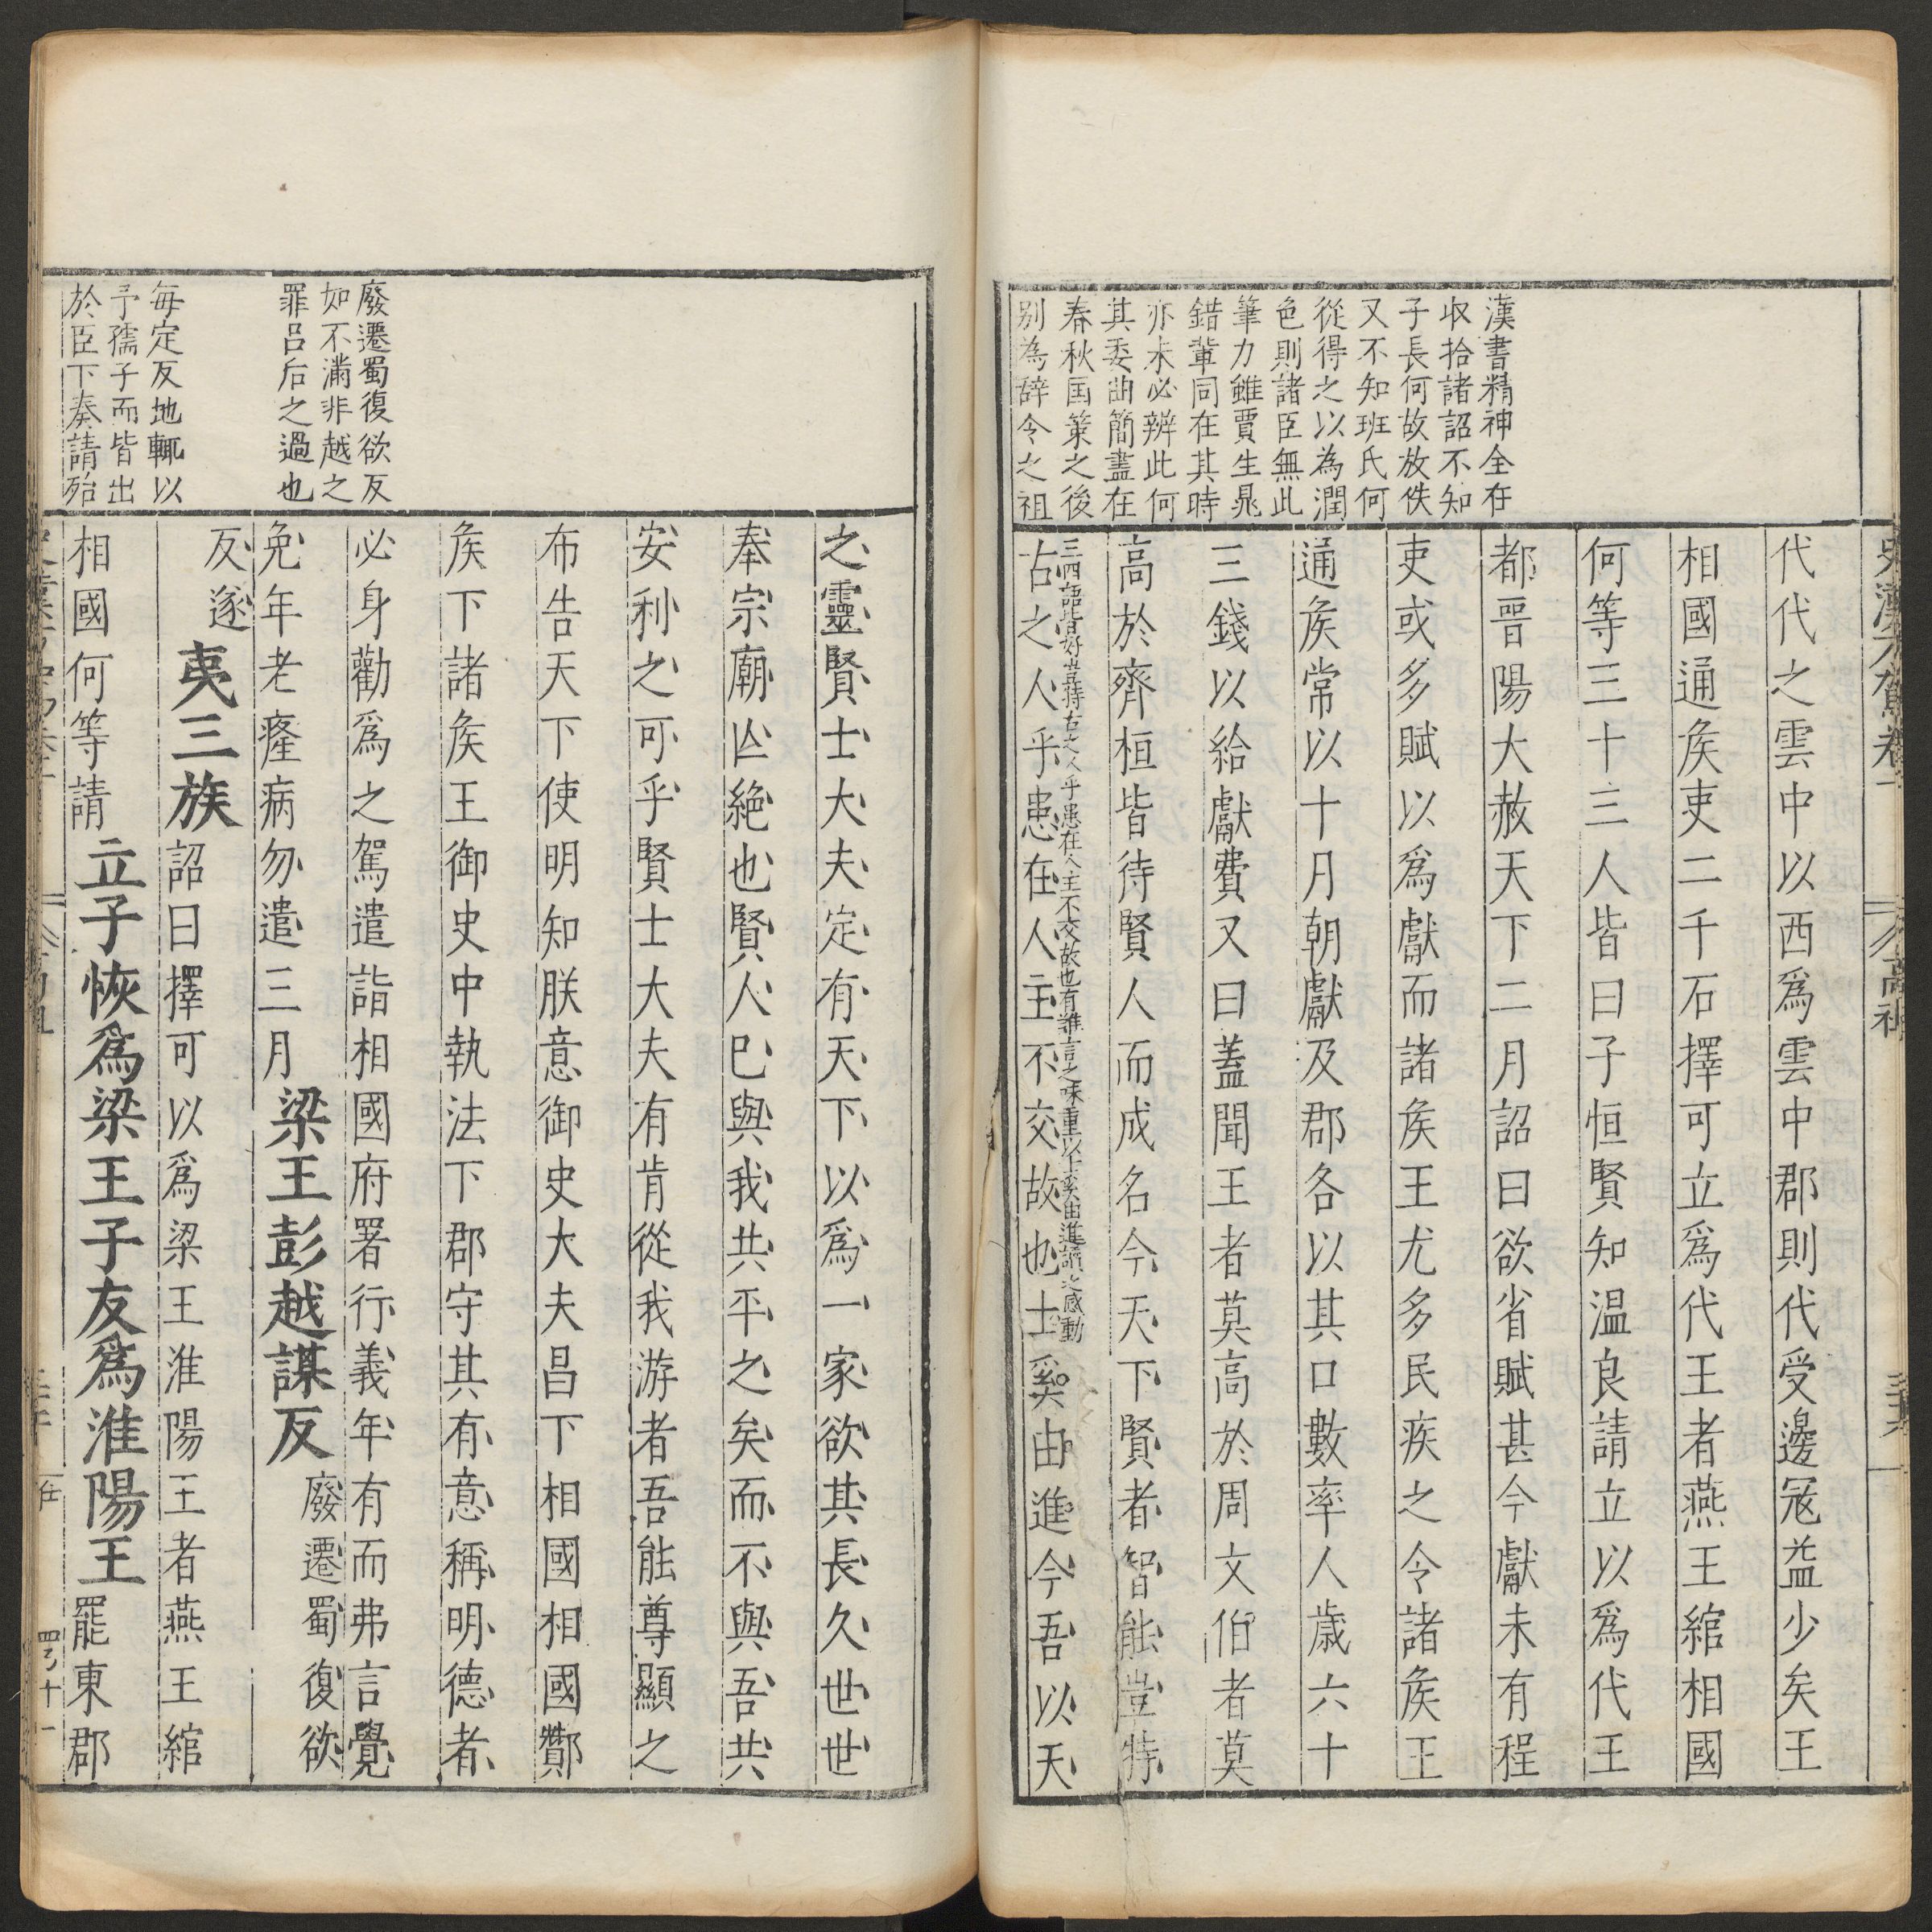 漢書精神全在
収拾諸詔不知
子長何故放佚
又不知班氏何
從得之以為潤
色則諸臣無此
筆力雖賈生晁
錯輩同在其時
亦未必辨此何
其委曲簡盡在
春秋国策之後
别為辞令之祖
代代之雲中以西爲雲中郡則代受邊冦益少矣王
相國通矦吏二千石擇可立爲代王者燕王綰相國
何等三十三人皆曰子恒賢知温良請立以爲代王
都晉陽大赦天下二月詔曰欲省賦甚今獻未有程
吏或多賦以爲獻而諸矦王尤多民疾之令諸矦王
通矦常以十月朝獻及郡各以其口數率人歳六十
三錢以給獻費又曰蓋聞王者莫高於周文伯者莫
高於齊桓皆待賢人而成名今天下賢者智能豈特
三四語皆好豈特古之人乎患在人主不交故也有誰言之味重以士奚由進讀之感動
古之人乎患在人主不交故也士奚由進今吾以天
廢遷蜀復欲反
如不滿非越之
罪吕后之過也
每定反地輒以
予孺子而皆出
於臣下奏請殆
之靈賢士大夫定有天下以爲一家欲其長久世世
奉宗廟亾絶也賢人已與我共平之矣而不與吾共
安利之可乎賢士大夫有肯從我游者吾能尊顯之
布告天下使明知朕意御史大夫昌下相國相國酇
矦下諸矦王御史中執法下郡守其有意稱明德者
必身勸爲之駕遣詣相國府署行義年有而弗言覺
免年老癃病勿遣三月梁王彭越謀反廢遷蜀復欲
反遂夷三族詔曰擇可以爲梁王淮陽王者燕王綰
相國何等請立子恢爲梁王子友爲淮陽王罷東郡